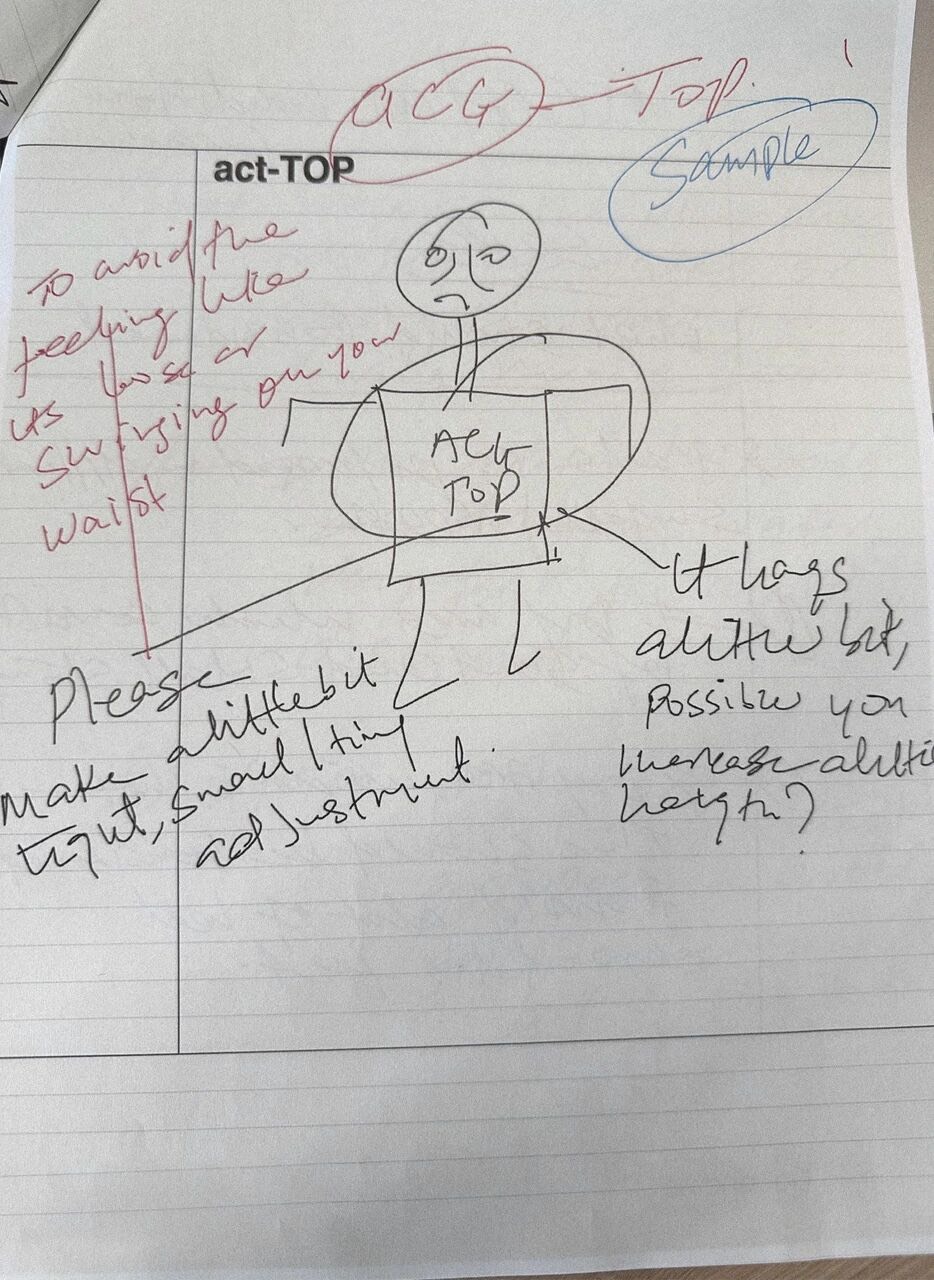 ACG — TOP.
Sample
act-TOP
To avoid the
feeling like
its loose or
swinging on your
waist
ACG
TOP
It hags
alittle bit,
possible you
increase alittle
heigth?
Please
make alittle bit
tight, small / tiny
adjustment.